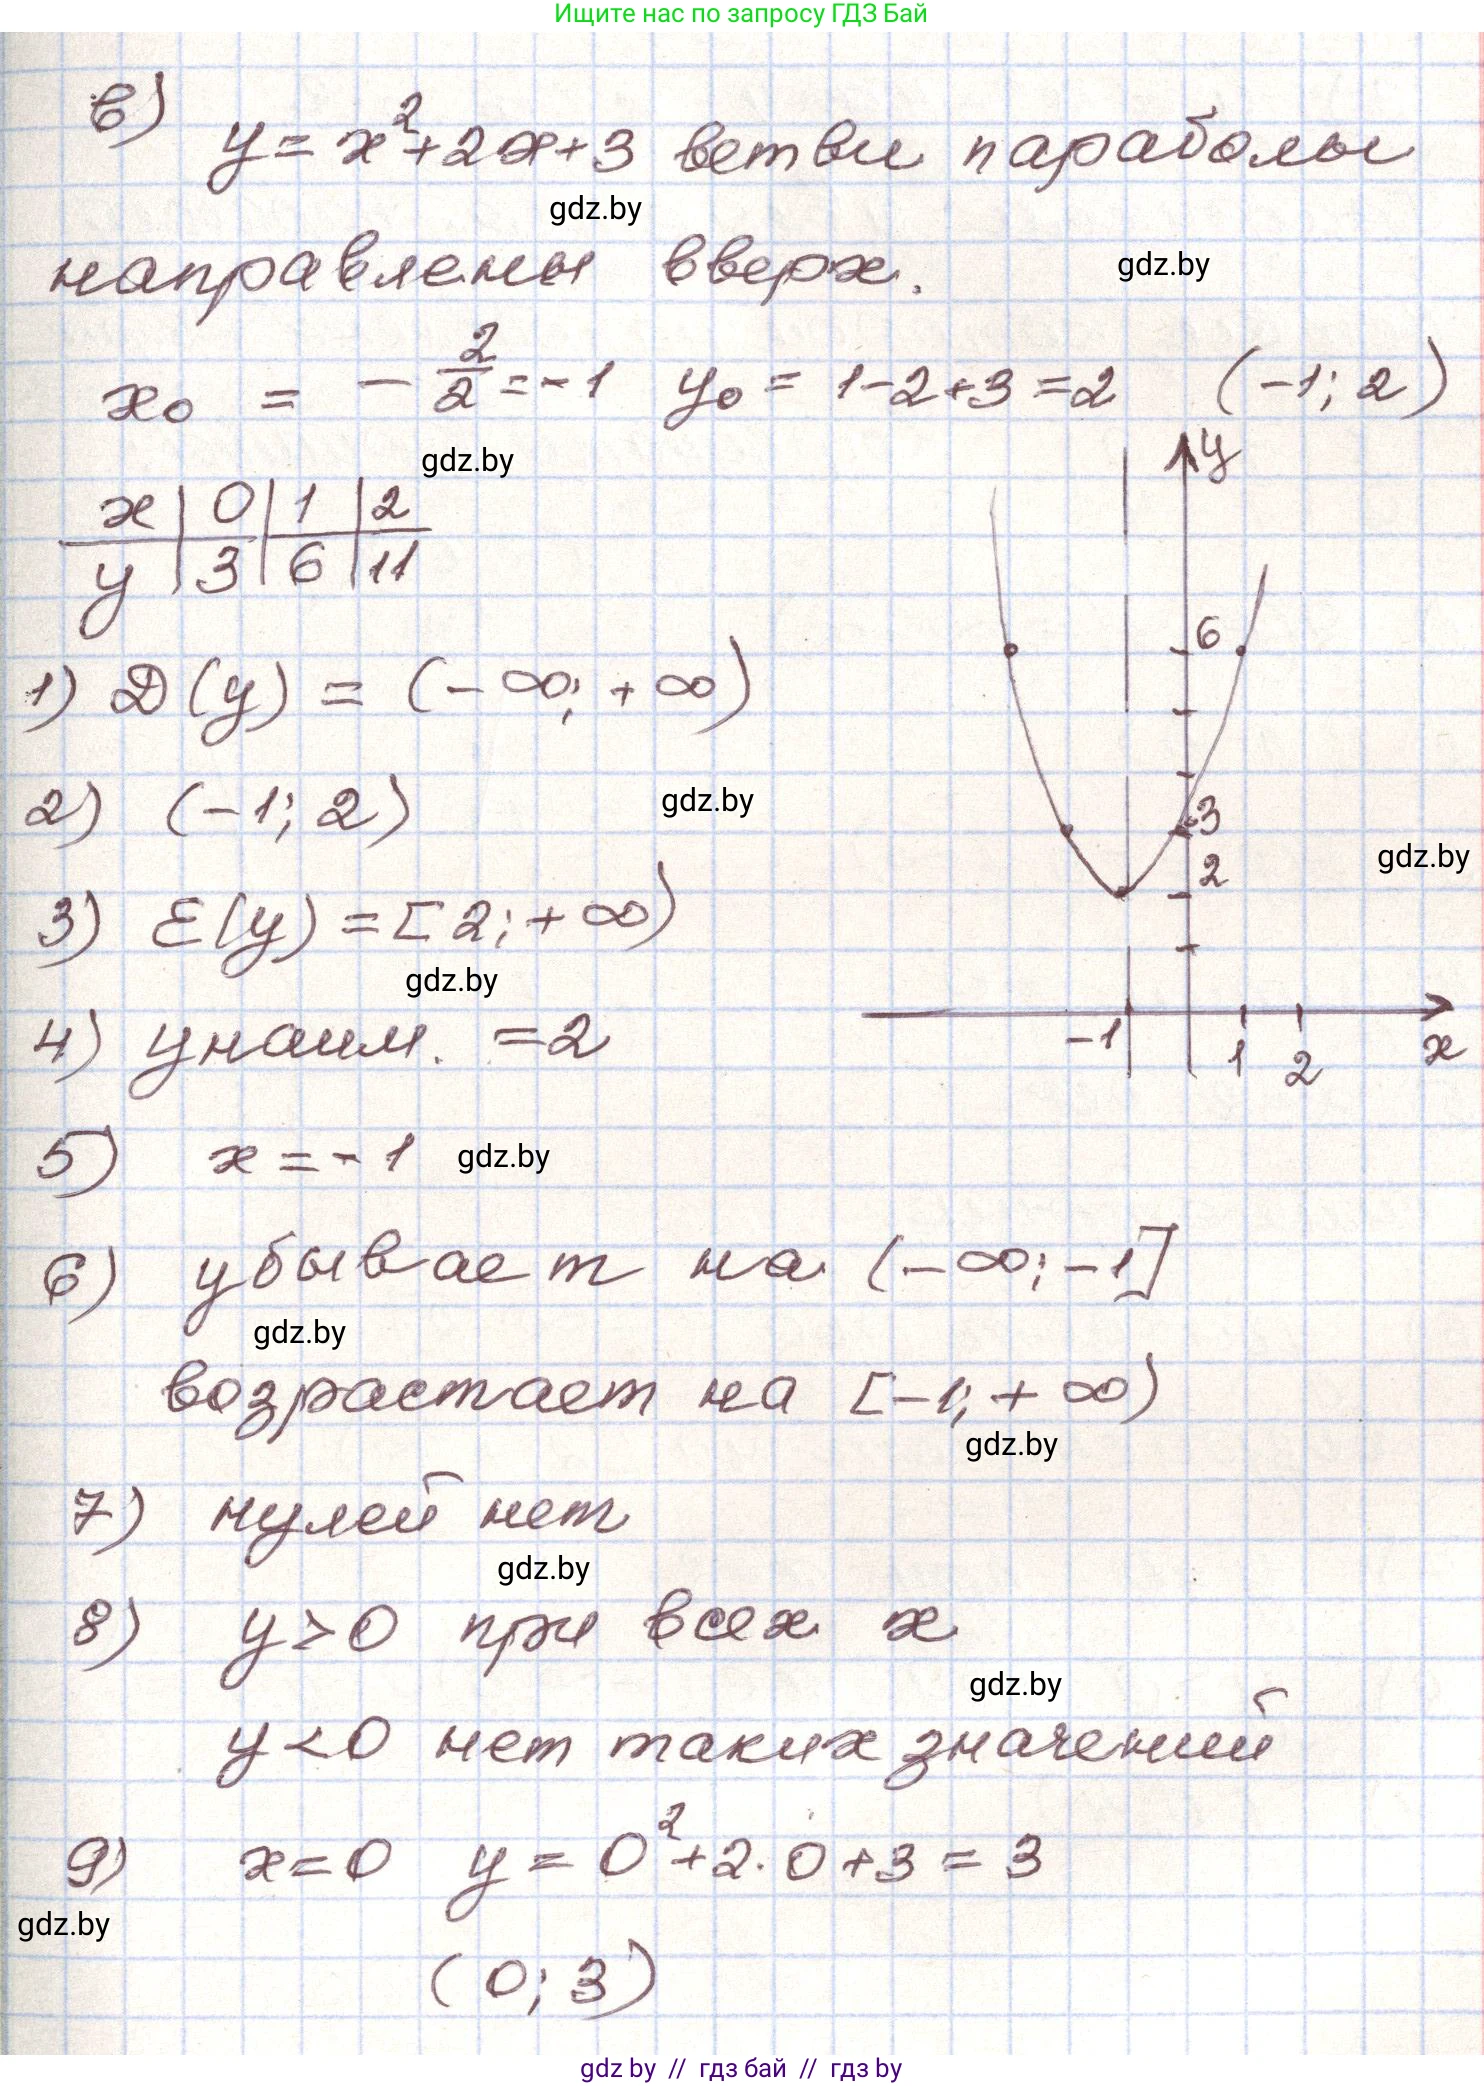 Ищите нас по запросу ГДЗ Бай
в) y = x² + 2x + 3 ветви параболы
gdz.by
направлены вверх.
gdz.by
x₀ = - 2/2 = -1 y₀ = 1 - 2 + 3 = 2 (-1; 2)
gdz.by
x | 0 | 1 | 2
y | 3 | 6 | 11
y
6
3
2
-1 1 2 x
1) D(y) = (-∞; +∞)
2) (-1; 2)
gdz.by
gdz.by
3) E(y) = [2; +∞)
gdz.by
4) yнаим. = 2
5) x = -1
gdz.by
6) убывает на (-∞; -1]
gdz.by
возрастает на [-1; +∞)
gdz.by
7) нулей нет
gdz.by
8) y > 0 при всех x
gdz.by
y < 0 нет таких значений
9) x = 0 y = 0² + 2·0 + 3 = 3
gdz.by
(0; 3)
gdz by // гдз бай // гдз by